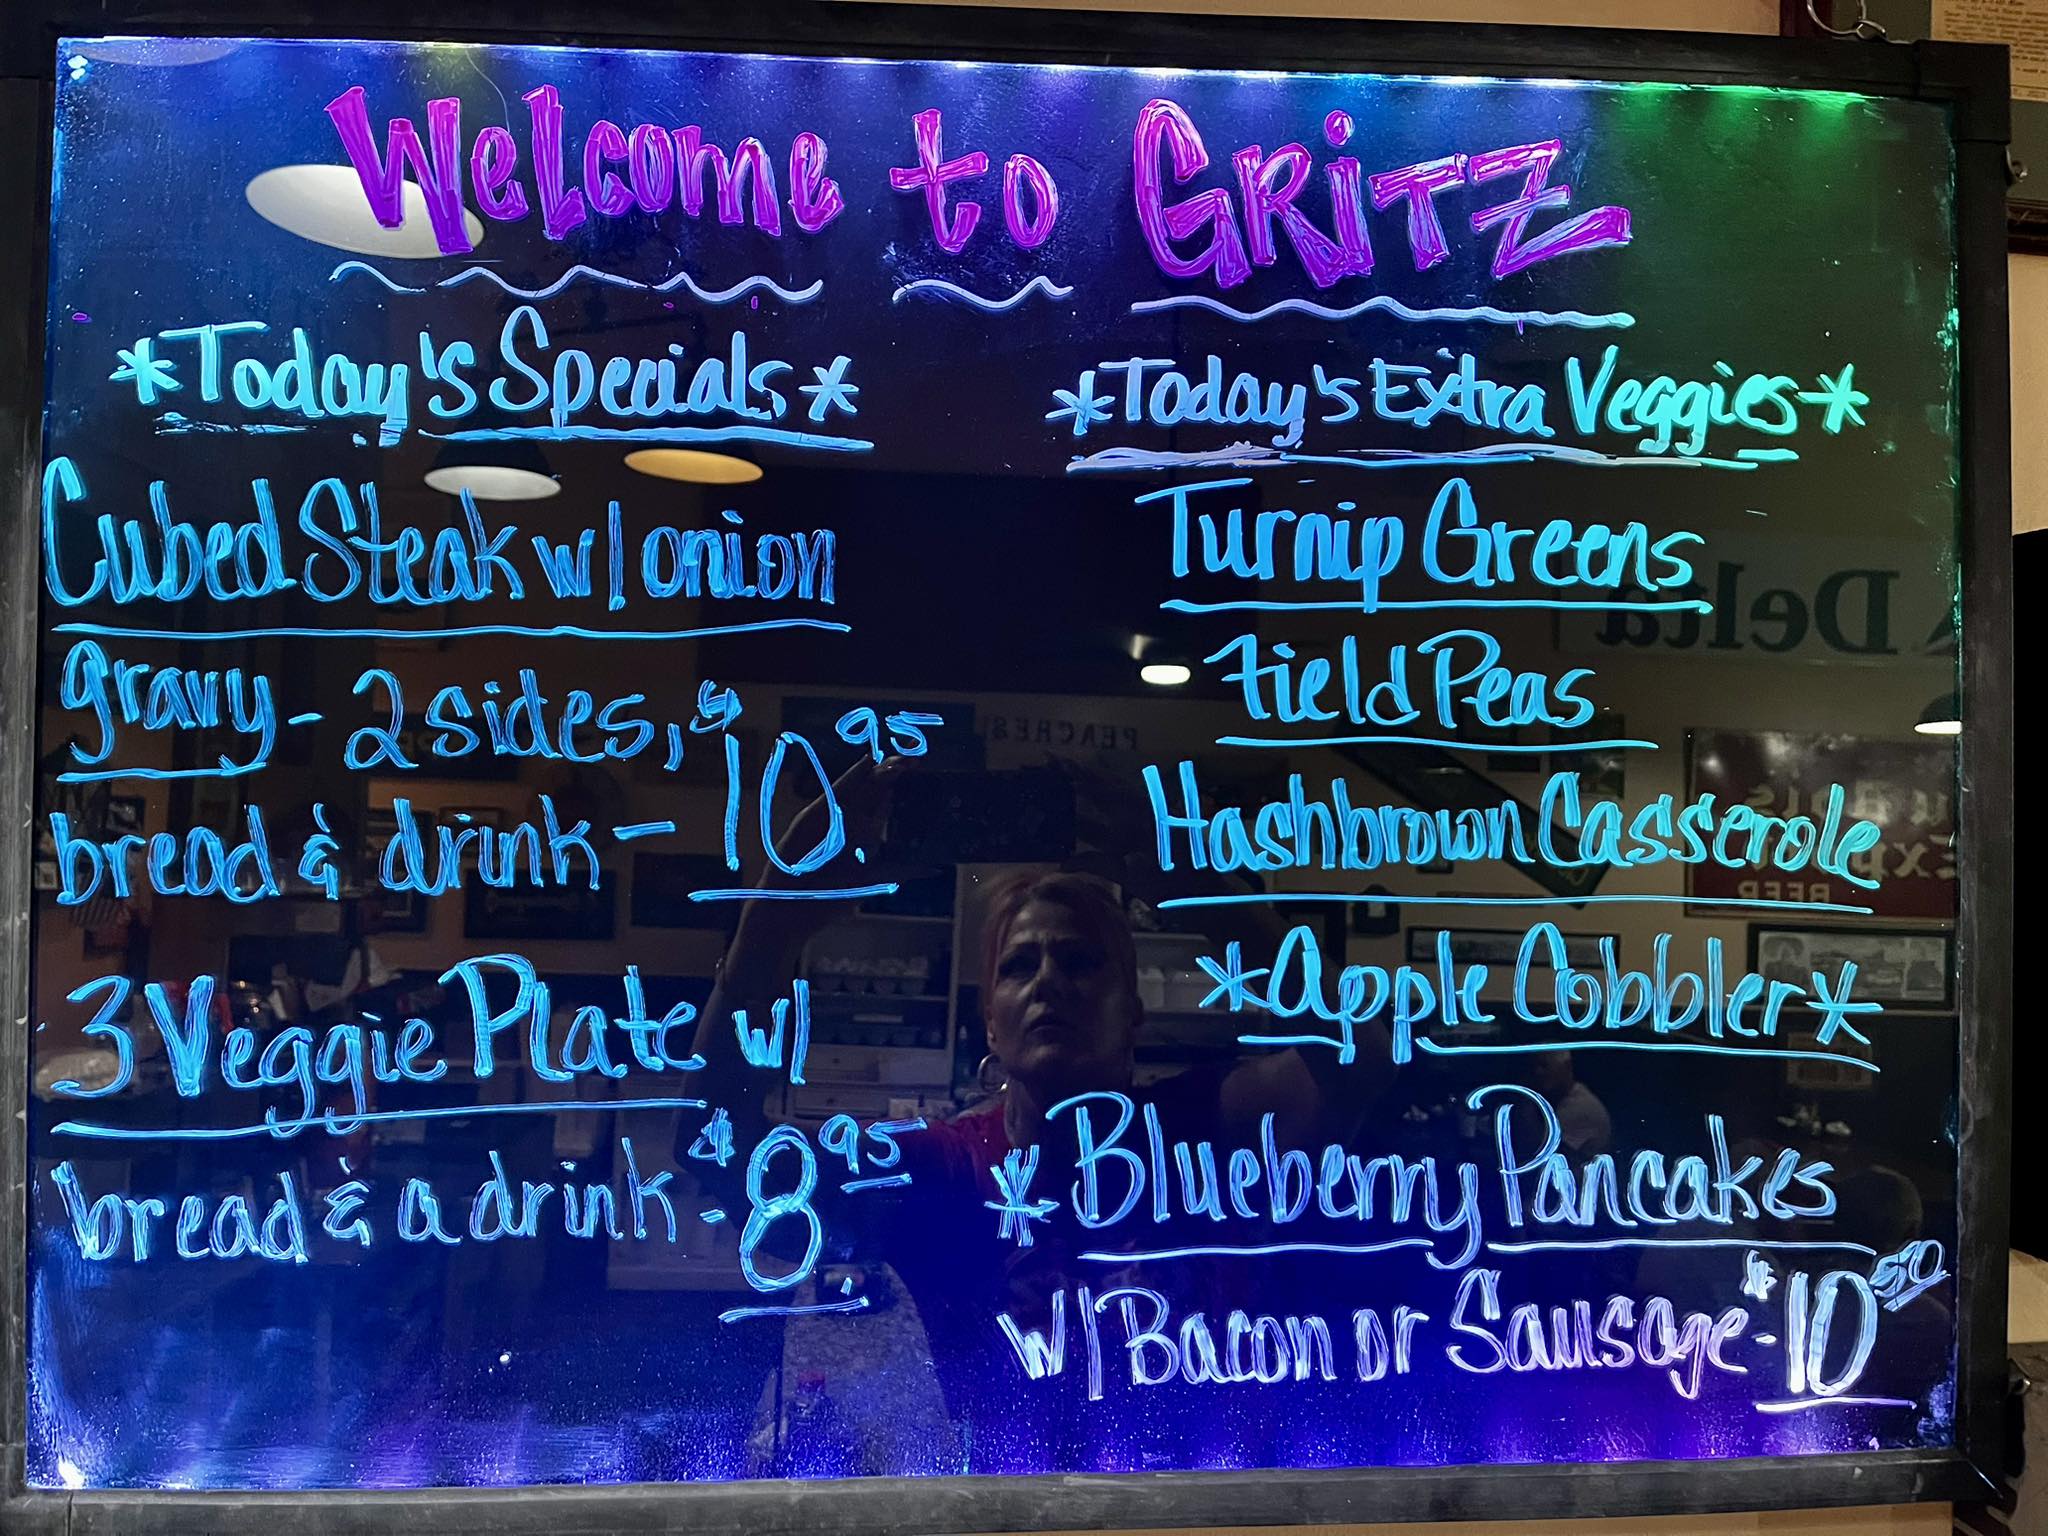 Welcome to GRiTZ
*Today's Specials*
Cubed Steak w/ onion
gravy - 2 sides,
bread & drink - $10.95
3 Veggie Plate w/
bread & a drink - $8.95
*Today's Extra Veggies*
Turnip Greens
Field Peas
Hashbrown Casserole
*Apple Cobbler*
*Blueberry Pancakes
w/ Bacon or Sausage - $10.50
Delta
PEACHES
BEER